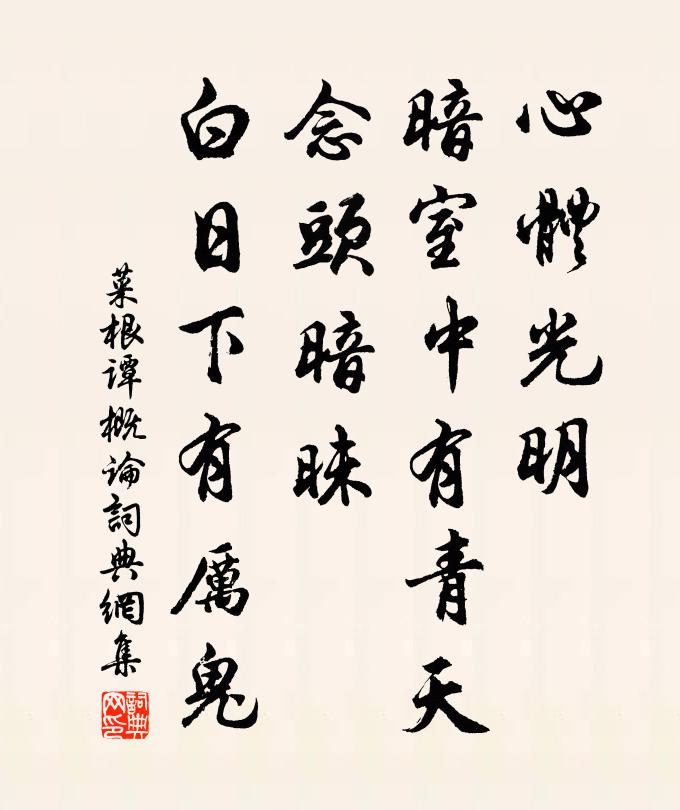 心體光明
暗室中有青天
念頭暗昧
白日下有厲鬼
菜根譚概論詞典網集
詞典网印